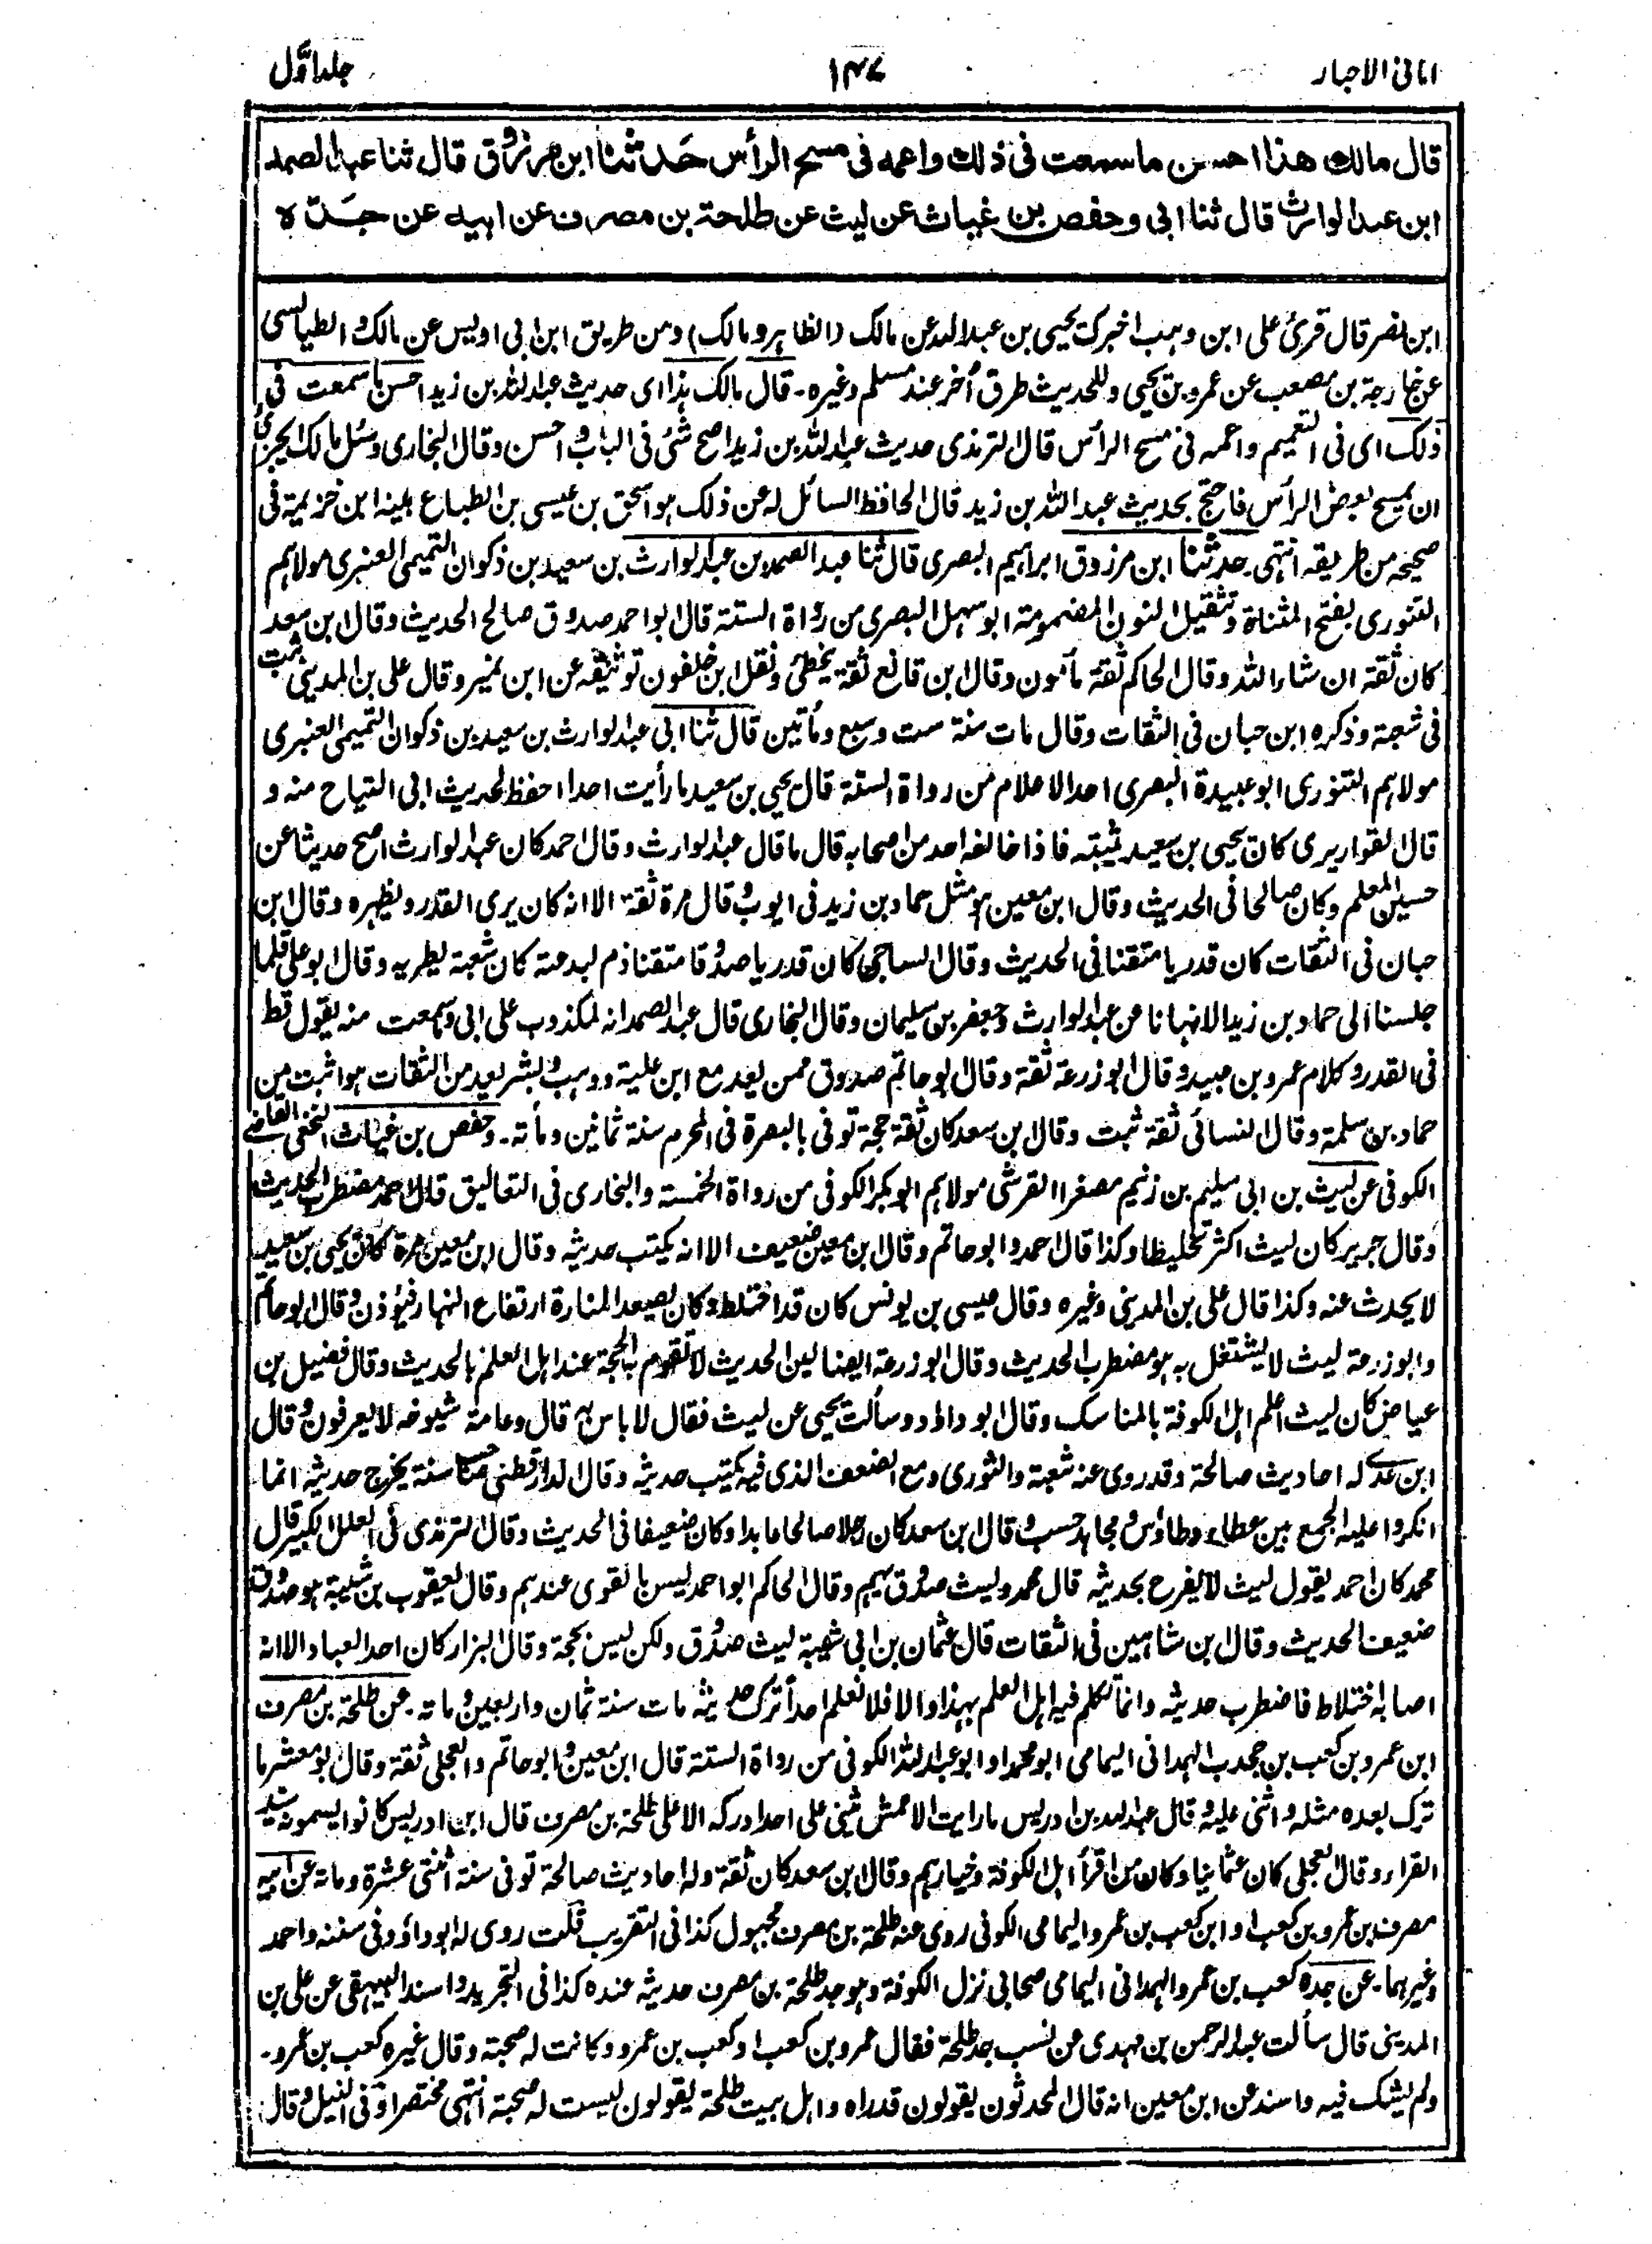 امانی الاحبار
۱۴۷
جلد اوّل
قال مالك هذا احسن ما سمعت فی ذلك واعمه فی مسح الرأس حَدثنا ابن مرزوق قال ثنا عبد الصمد
ابن عبد الوارث قال ثنا ابی وحفص بن غیاث عن لیث عن طلحة بن مصرف عن ابیه عن جَدّه
ابن نصر قال قرئ علی ابن وہب اخبرک یحیی بن عبد اللہ عن مالک (الظاہر ومالک) ومن طریق ابن ابی اویس عن مالک والطیالسی
عن خارجة بن مصعب عن عمرو بن یحیی وللحدیث طرق أخر عند مسلم وغیرہ۔ قال مالک ہذا ای حدیث عبد اللہ بن زید احسن ما سمعت فی
ذلک ای فی التعمیم واعمہ فی مسح الرأس قال الترمذی حدیث عبد اللہ بن زید اصح شئ فی الباب واحسن وقال البخاری وسئل مالک ایجزئ
ان یمسح بعض الرأس فاحتج بحدیث عبد اللہ بن زید قال الحافظ السائل لہ عن ذلک ہو اسحق بن عیسی بن الطباع بینہ ابن خزیمة فی
صحیحہ من طریقہ انتہی۔ حدثنا ابن مرزوق ابراہیم البصری قال ثنا عبد الصمد بن عبد الوارث بن سعید بن ذکوان التمیمی العنبری مولاہم
التنوری بفتح المثناة وتثقیل النون المضمومة ابو سہل البصری من رواة الستة قال ابو احمد صدوق صالح الحدیث وقال ابن سعد
کان ثقة ان شاء اللہ وقال الحاکم ثقة مأمون وقال ابن قانع ثقة یخطئ ونقل ابن خلفون توثیقہ عن ابن نمیر وقال علی بن المدینی ثبت
فی شعبة وذکرہ ابن حبان فی الثقات وقال مات سنة ست وسبع ومأتین قال ثنا ابی عبد الوارث بن سعید بن ذکوان التمیمی العنبری
مولاہم التنوری ابو عبیدة البصری احد الاعلام من رواة الستة قال یحیی بن سعید ما رأیت احدا احفظ لحدیث ابی التیاح منہ و
قال القواریری کان یحیی بن سعید یثبتہ فاذا خالفہ احد من اصحابہ قال ما قال عبد الوارث وقال احمد کان عبد الوارث اصح حدیثا عن
حسین المعلم وکان صالحا فی الحدیث وقال ابن معین ہو مثل حماد بن زید فی ایوب وقال مرة ثقة الا انہ کان یری القدر ویظہرہ وقال ابن
حبان فی الثقات کان قدریا متقنا فی الحدیث وقال الساجی کان قدریا صدوقا متقنا ذم لبدعتہ کان شعبة یطریہ وقال ابو علی قلما
جلسنا الی حماد بن زید الا نہانا عن عبد الوارث وجعفر بن سلیمان وقال البخاری قال عبد الصمد انہ لمکذوب علی ابی وما سمعت منہ یقول قط
فی القدر وکلام عمرو بن عبید وقال ابو زرعة ثقة وقال ابو حاتم صدوق ممن یعد مع ابن علیة ووہیب وبشر یعد من الثقات ہو اثبت من
حماد بن سلمة وقال النسائی ثقة ثبت وقال ابن سعد کان ثقة حجة توفی بالبصرة فی المحرم سنة ثمانین ومأتہ۔ وحفص بن غیاث النخعی القاضی
الکوفی عن لیث بن ابی سلیم بن زنیم مصغرا القرشی مولاہم ابو بکر الکوفی من رواة الخمسة والبخاری فی التعالیق قال احمد مضطرب الحدیث
وقال جریر کان لیث اکثر تخلیطا وکذا قال احمد وابو حاتم وقال ابن معین ضعیف الا انہ یکتب حدیثہ وقال ابن معین مرة کان یحیی بن سعید
لا یحدث عنہ وکذا قال علی بن المدینی وغیرہ وقال عیسی بن یونس کان قد اختلط وکان یصعد المنارة ارتفاع النہار فیؤذن وقال ابو حاتم
وابو زرعة لیث لا یشتغل بہ ہو مضطرب الحدیث وقال ابو زرعة ایضا لین الحدیث لا تقوم بہ الحجة عند اہل العلم بالحدیث وقال فضیل بن
عیاض کان لیث اعلم اہل الکوفة بالمناسک وقال ابو داؤد وسألت یحیی عن لیث فقال لا باس بہ قال وعامة شیوخہ لا یعرفون وقال
ابن عدی لہ احادیث صالحة وقد روی عنہ شعبة والثوری ومع الضعف الذی فیہ یکتب حدیثہ وقال الدارقطنی صاحب سنة یخرج حدیثہ انما
انکروا علیہ الجمع بین عطاء وطاؤس ومجاہد حسب وقال ابن سعد کان رجلا صالحا عابدا وکان ضعیفا فی الحدیث وقال الترمذی فی العلل الکبیر قال
محمد کان احمد یقول لیث لا یفرح بحدیثہ قال محمد ولیث صدوق یہم وقال الحاکم ابو احمد لیس بالقوی عندہم وقال یعقوب بن شیبة ہو صدوق
ضعیف الحدیث وقال ابن شاہین فی الثقات قال عثمان بن ابی شیبة لیث صدوق ولکن لیس بحجة وقال البزار کان احد العباد الا انہ
اصابہ اختلاط فاضطرب حدیثہ وانما تکلم فیہ اہل العلم بہذا والا فلا نعلم احداً ترک حدیثہ مات سنة ثمان واربعین وماتہ۔ عن طلحة بن مصرف
ابن عمرو بن کعب بن جحدب الہمدانی الیمامی ابو محمد او ابو عبد اللہ الکوفی من رواة الستة قال ابن معین وابو حاتم والعجلی ثقة وقال ابو معشر ما
ترک بعدہ مثلہ واثنی علیہ وقال عبد اللہ بن ادریس ما رایت الاعمش یثنی علی احد ادرکہ الا علی طلحة بن مصرف قال ابن ادریس کانوا یسمونہ سید
القراء وقال العجلی کان عثمانیا وکان من اقرأ اہل الکوفة وخیارہم وقال ابن سعد کان ثقة ولہ احادیث صالحة توفی سنة اثنتی عشرة وماتہ عن ابیہ
مصرف بن عمرو بن کعب او ابن کعب بن عمرو الیمامی الکوفی روی عنہ طلحة بن مصرف مجہول کذا فی التقریب قلت روی لہ ابو داؤد فی سننہ واحمد
وغیرہما۔ عن جدہ کعب بن عمرو الہمدانی الیمامی صحابی نزل الکوفة وہو جد طلحة بن مصرف حدیثہ عندہ کذا فی التجرید واسند البیہقی عن علی بن
المدینی قال سألت عبد الرحمن بن مہدی عن نسب جد طلحة فقال عمرو بن کعب او کعب بن عمرو وکانت لہ صحبة وقال غیرہ کعب بن عمرو۔
ولم یشک فیہ واسند عن ابن معین انہ قال المحدثون یقولون قد راہ واہل بیت طلحة یقولون لیست لہ صحبة انتہی مختصرا وفی النیل وقال